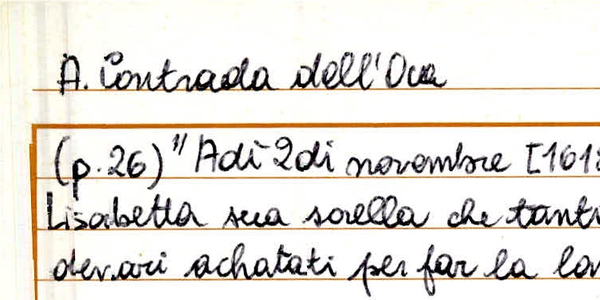 A. Contrada dell'Oca
(p. 26) "Adì 2 di novembre [161
Lisabetta sua sorella che tant
denari achatati per far la la